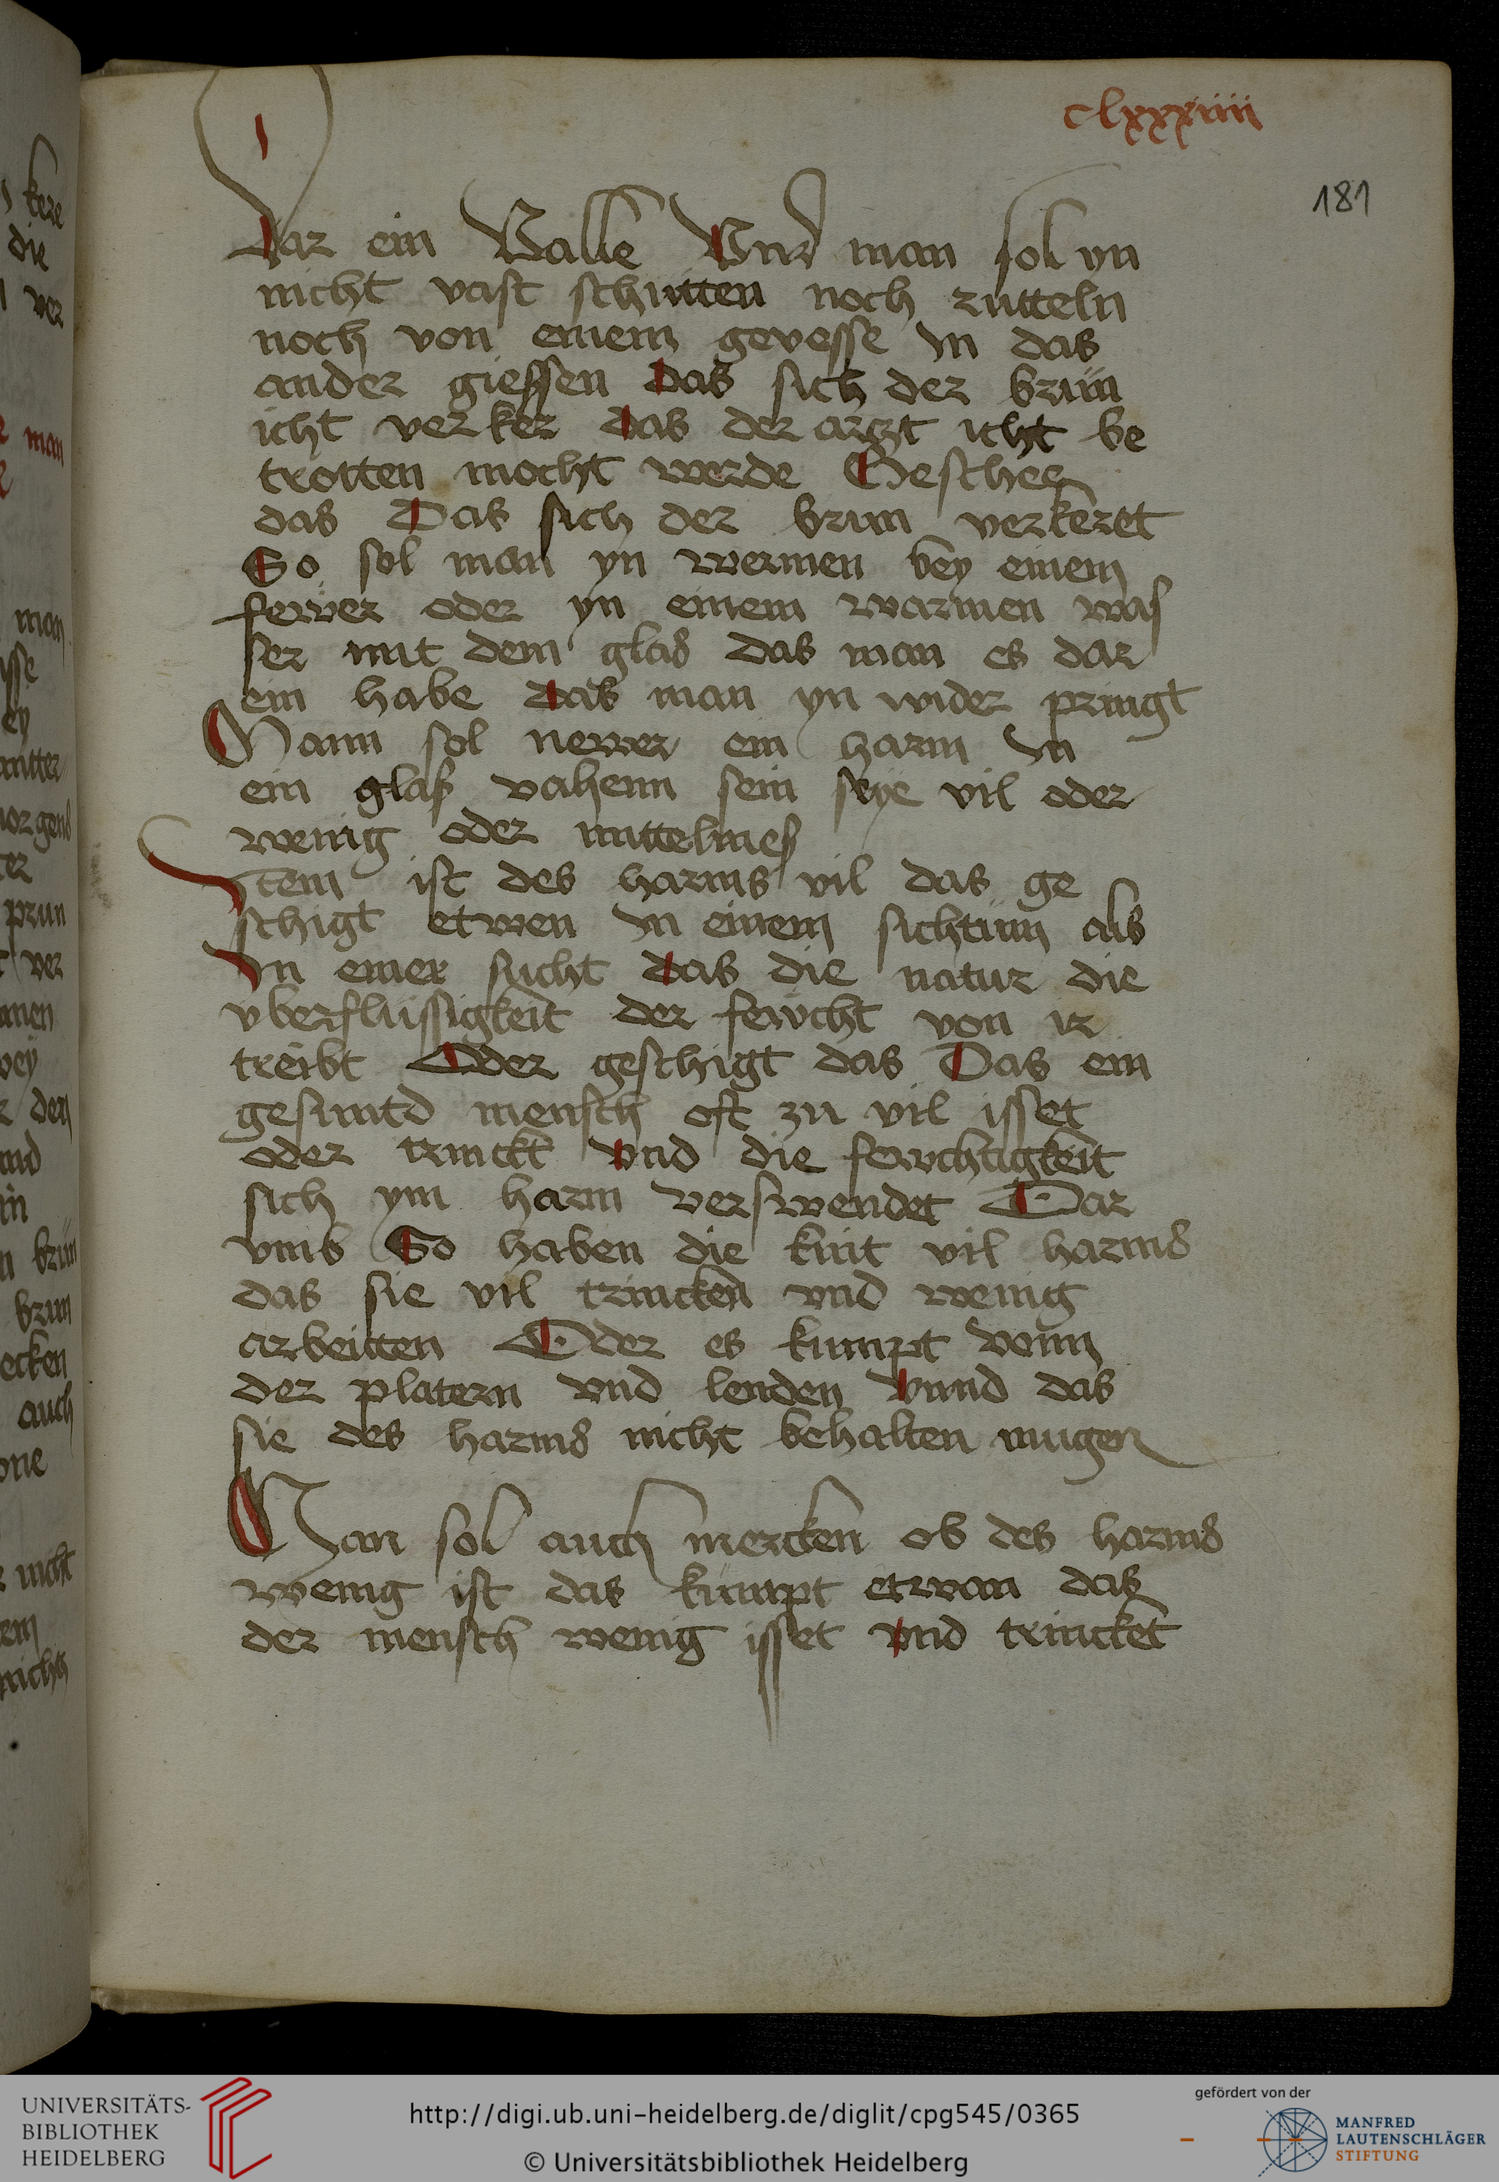 clxxxiiii
181
dar ein Valle Vnd man sol yn
nicht vast schütten noch zutteln
noch von einem gevesse In das
ander giessen das sich der brün
icht verker das der arczt icht be
trotten mocht werde Geschee
das Das sich der brun verkeret
So sol man yn wermen bey einem
fewer oder yn einem warmen was
ser mit dem glas das man es dar
ein habe das man yn wider pringt
Mann sol newer ein harm In
ein glaß vahenn sein seye vil oder
wenig oder mittelmeß
Item ist des harms vil das ge
schigt etwen In einem sichtum als
In einer sucht das die natur die
vberflussigkeit der fewcht von ir
treibt Oder geschigt das Das ein
gesuntd mensch oft zu vil isset
oder trinckt vnd die fewchtigkeit
sich ym harm verswendet Dar
vmb So haben die kint vil harms
das sie vil trincken vnd wenig
arbeitten Oder es kumpt vonn
der platern vnd lenden vnnd das
sie des harms nicht behalten mugen
Man sol auch mercken ob des harms
wenig ist das kumpt etwan das
der mensch wenig isset vnd trincket
UNIVERSITÄTS-
BIBLIOTHEK
HEIDELBERG
http://digi.ub.uni-heidelberg.de/diglit/cpg545/0365
© Universitätsbibliothek Heidelberg
gefördert von der
MANFRED
LAUTENSCHLÄGER
STIFTUNG